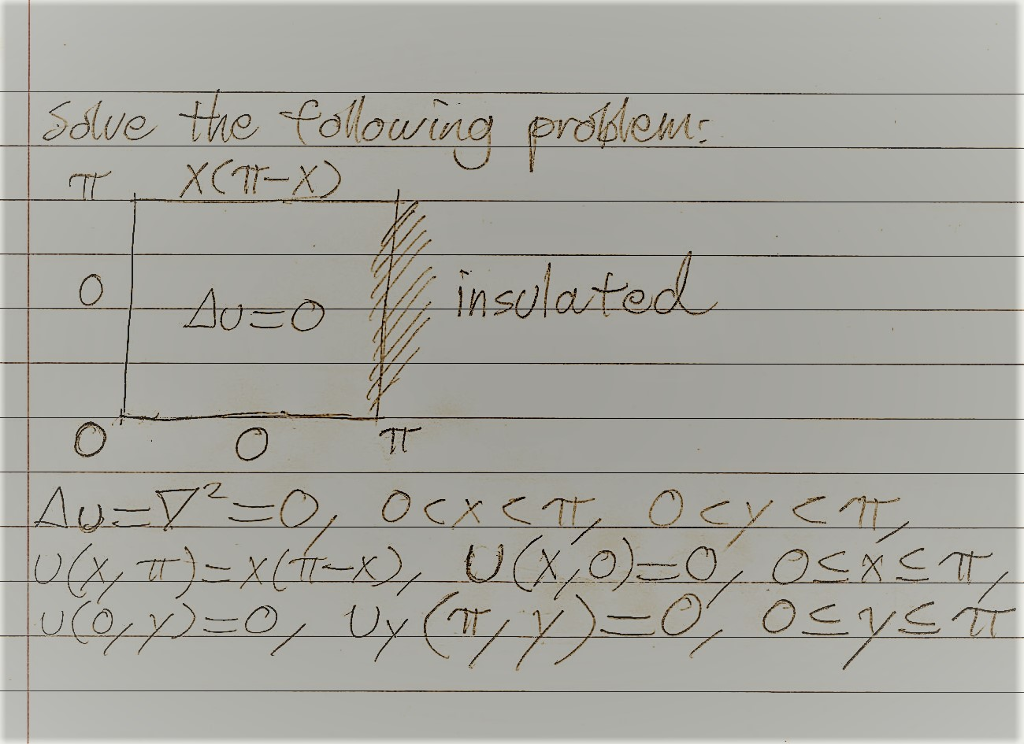 Solve the following problem:
π x(π-x)
0 Δu=0 insulated
0 0 π
Δu=∇²=0, 0<x<π, 0<y<π,
u(x,π)=x(π-x), u(x,0)=0, 0≤x≤π,
u(0,y)=0, uy(π,y)=0, 0≤y≤π